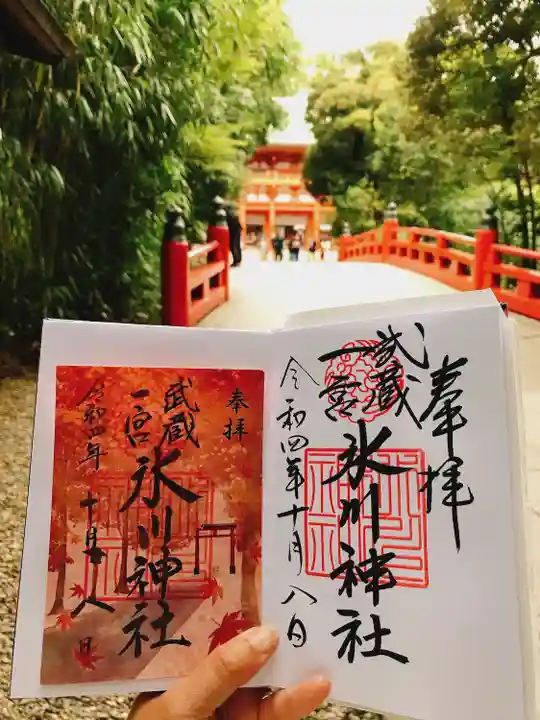 奉拝
武蔵
一宮
氷川神社
令和四年十月八日
奉拝
武蔵
一宮
氷川神社
令和四年
十月八日